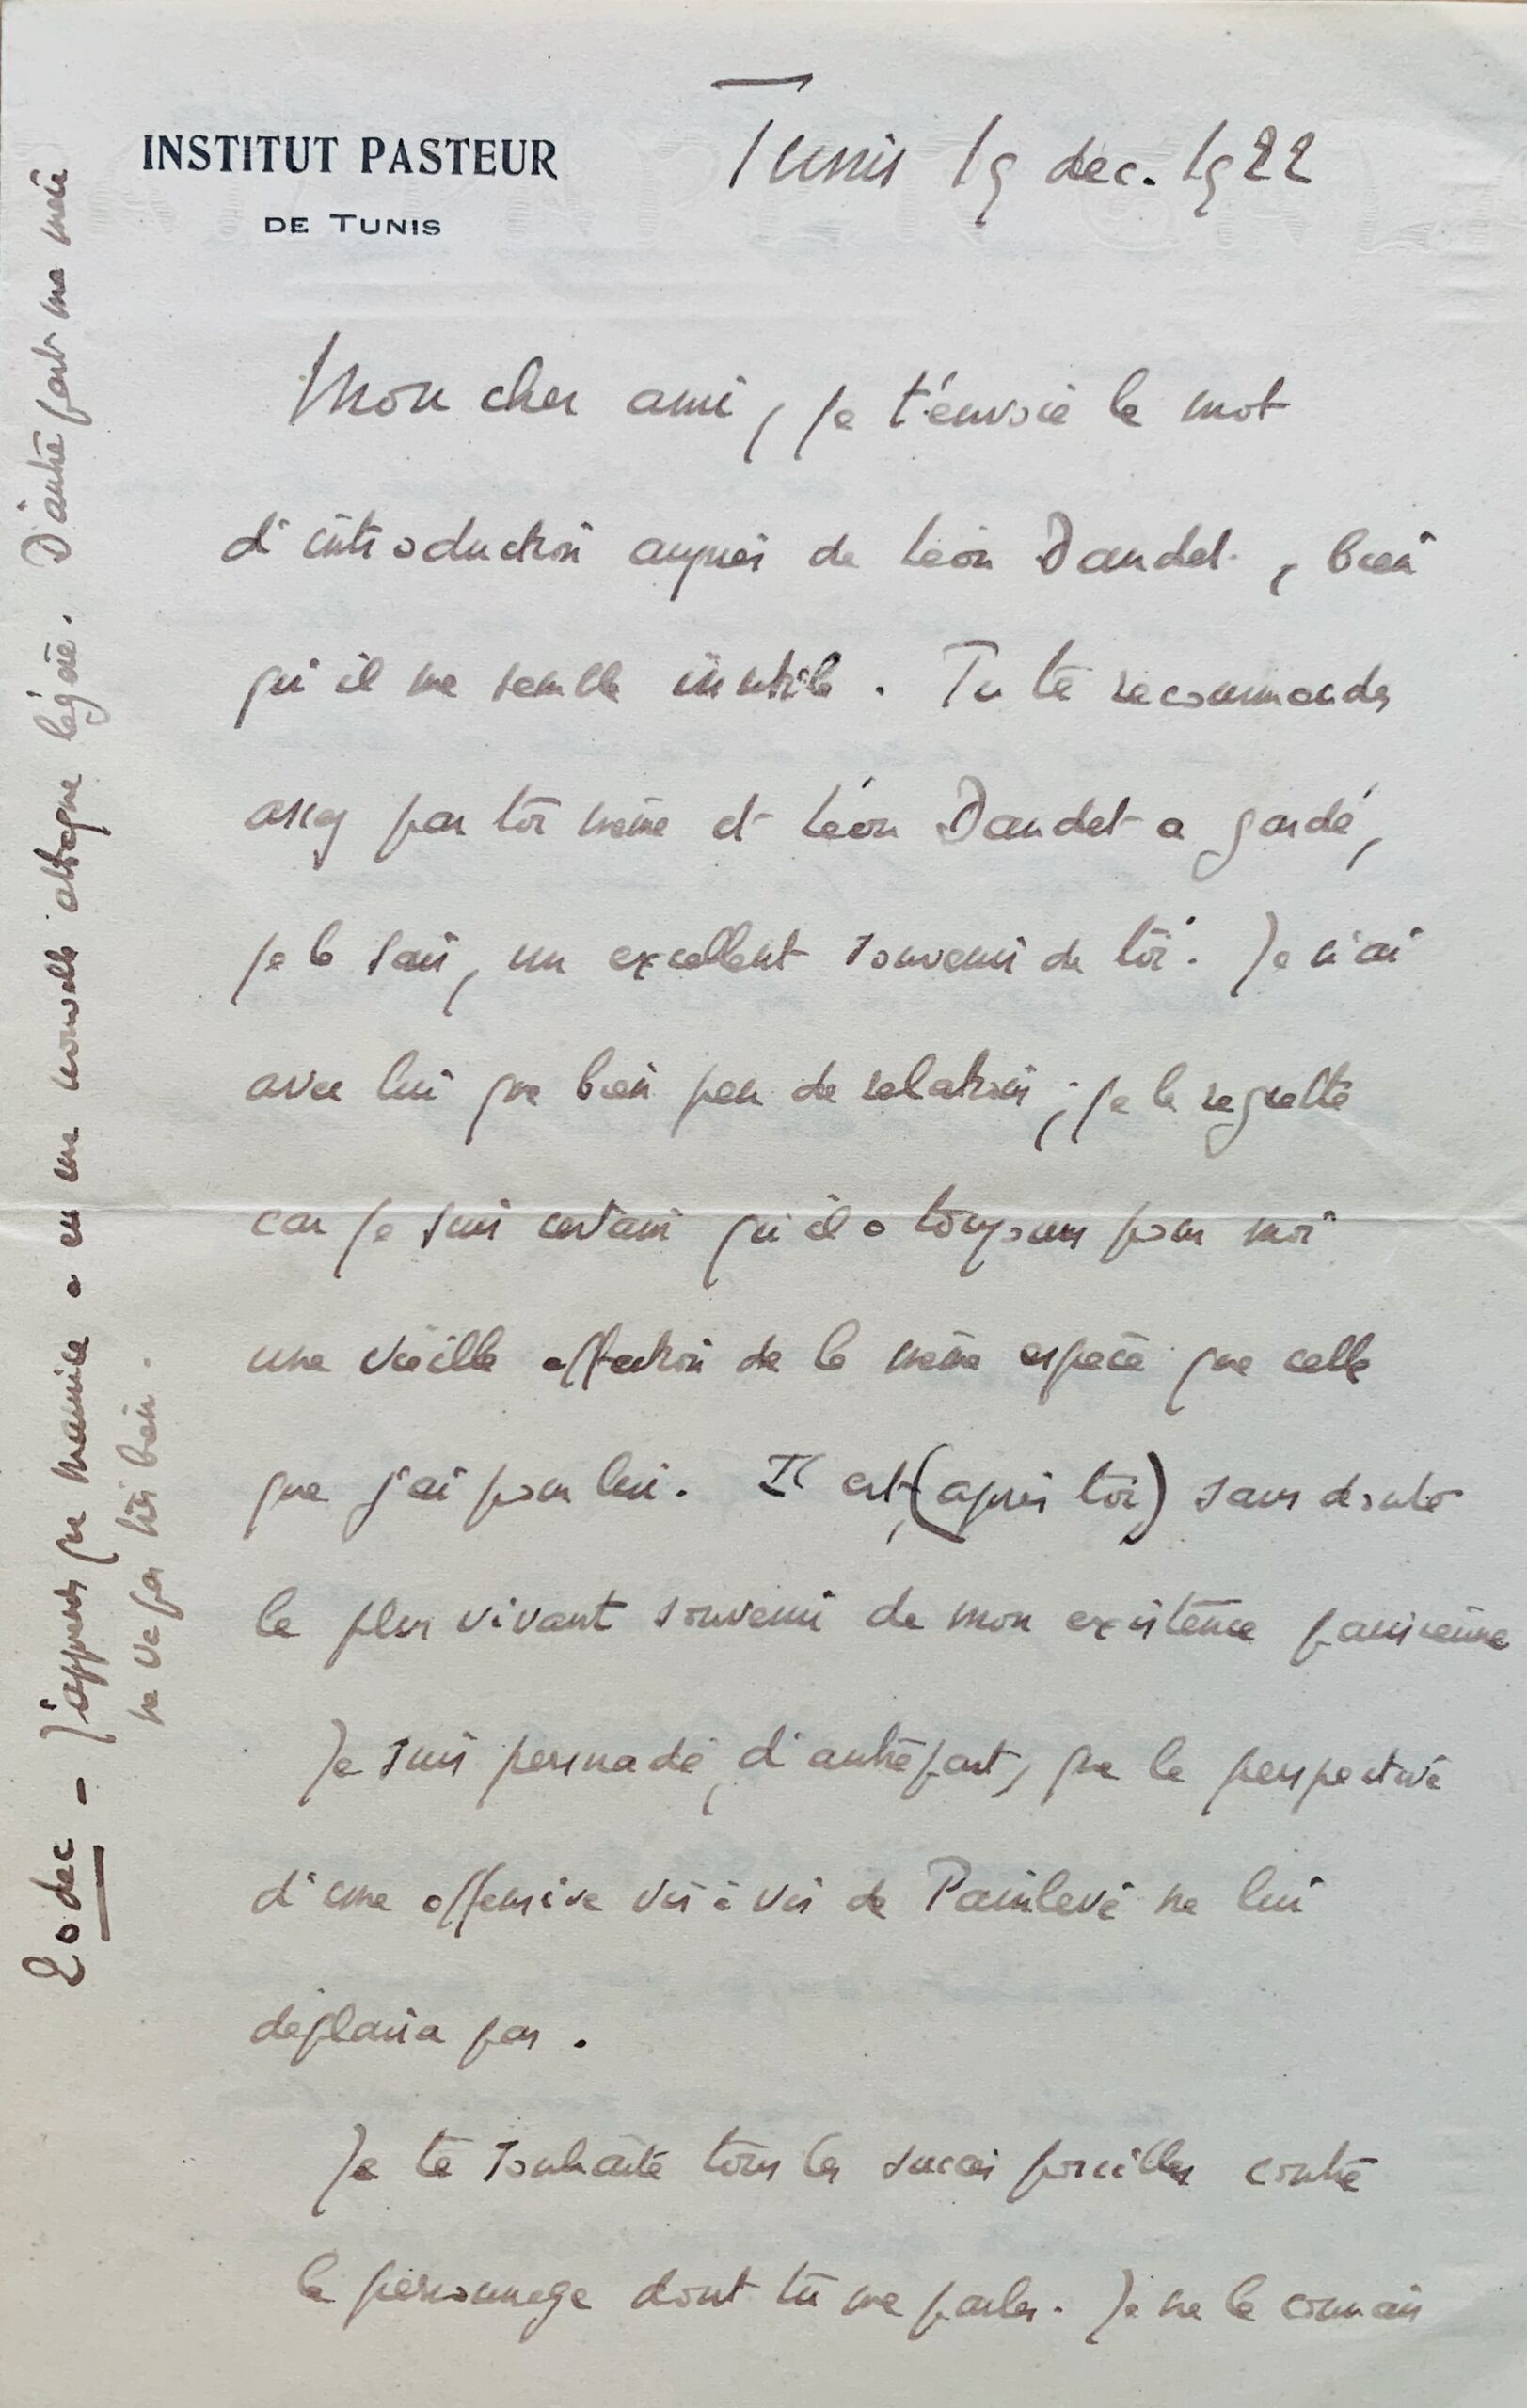 INSTITUT PASTEUR
DE TUNIS
Tunis 19 dec. 1922
Mon cher ami, je t'envoie le mot
d'introduction auprès de Léon Daudet, bien
qu'il me semble inutile. Tu te recommandes
assez par toi même et Léon Daudet a gardé,
je le sais, un excellent souvenir de toi. Je n'ai
avec lui que bien peu de relations ; je le regrette
car je suis certain qu'il a toujours pour moi
une vieille affection de la même espèce que celle
que j'ai pour lui. Il est (après toi) sans doute
le plus vivant souvenir de mon existence parisienne
Je suis persuadé, d'autre part, que la perspective
d'une offensive vis à vis de Painlevé ne lui
déplaira pas.
Je te souhaite tous les succès possibles contre
le personnage dont tu me parles. Je ne le connais
20 dec - J'apprends que Maurice a eu une nouvelle attaque légère. D'autre part ma mère
ne va pas très bien.